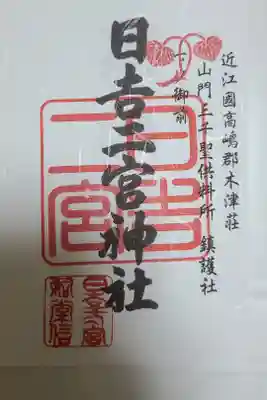 近江國高嶋郡木津荘
山門三千聖供料所 鎮護社
御前
日吉二宮神社
日吉
二宮